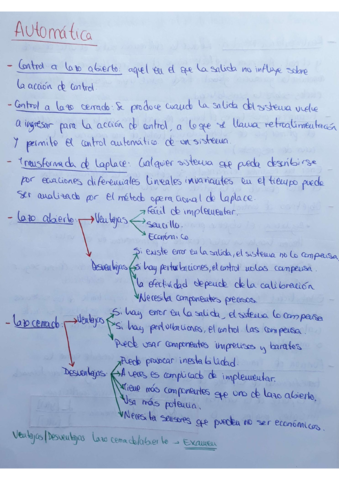 Automática
- Control a lazo abierto: aquel en el que la salida no influye sobre
la acción de control
- Control a lazo cerrado: Se produce cuando la salida del sistema vuelve
a ingresar para la acción de control, a lo que se llama retroalimentación
y permite el control automático de un sistema
- Transformada de Laplace: Cualquier sistema que pueda describirse
por ecuaciones diferenciales lineales invariantes en el tiempo puede
ser analizado por el método operacional de Laplace
- Lazo abierto → Ventajas → Fácil de implementar.
→ Sencillo.
→ Económico
Desventajas → Si existe error en la salida, el sistema no lo compensa
→ Si hay perturbaciones, el control no las compensa
→ la efectividad depende de la calibración
→ Necesita componentes precisos.
- Lazo cerrado → Ventajas → Si hay error en la salida, el sistema lo compensa
→ Si hay perturbaciones, el control las compensa
→ Puede usar componentes imprecisos y baratos
Desventajas → Puede provocar inestabilidad
→ A veces es complicado de implementar.
→ Tiene más componentes que uno de lazo abierto.
→ Usa más potencia.
→ Necesita sensores que pueden no ser económicos.
Ventajas/Desventajas lazo cerrado/abierto → Examen